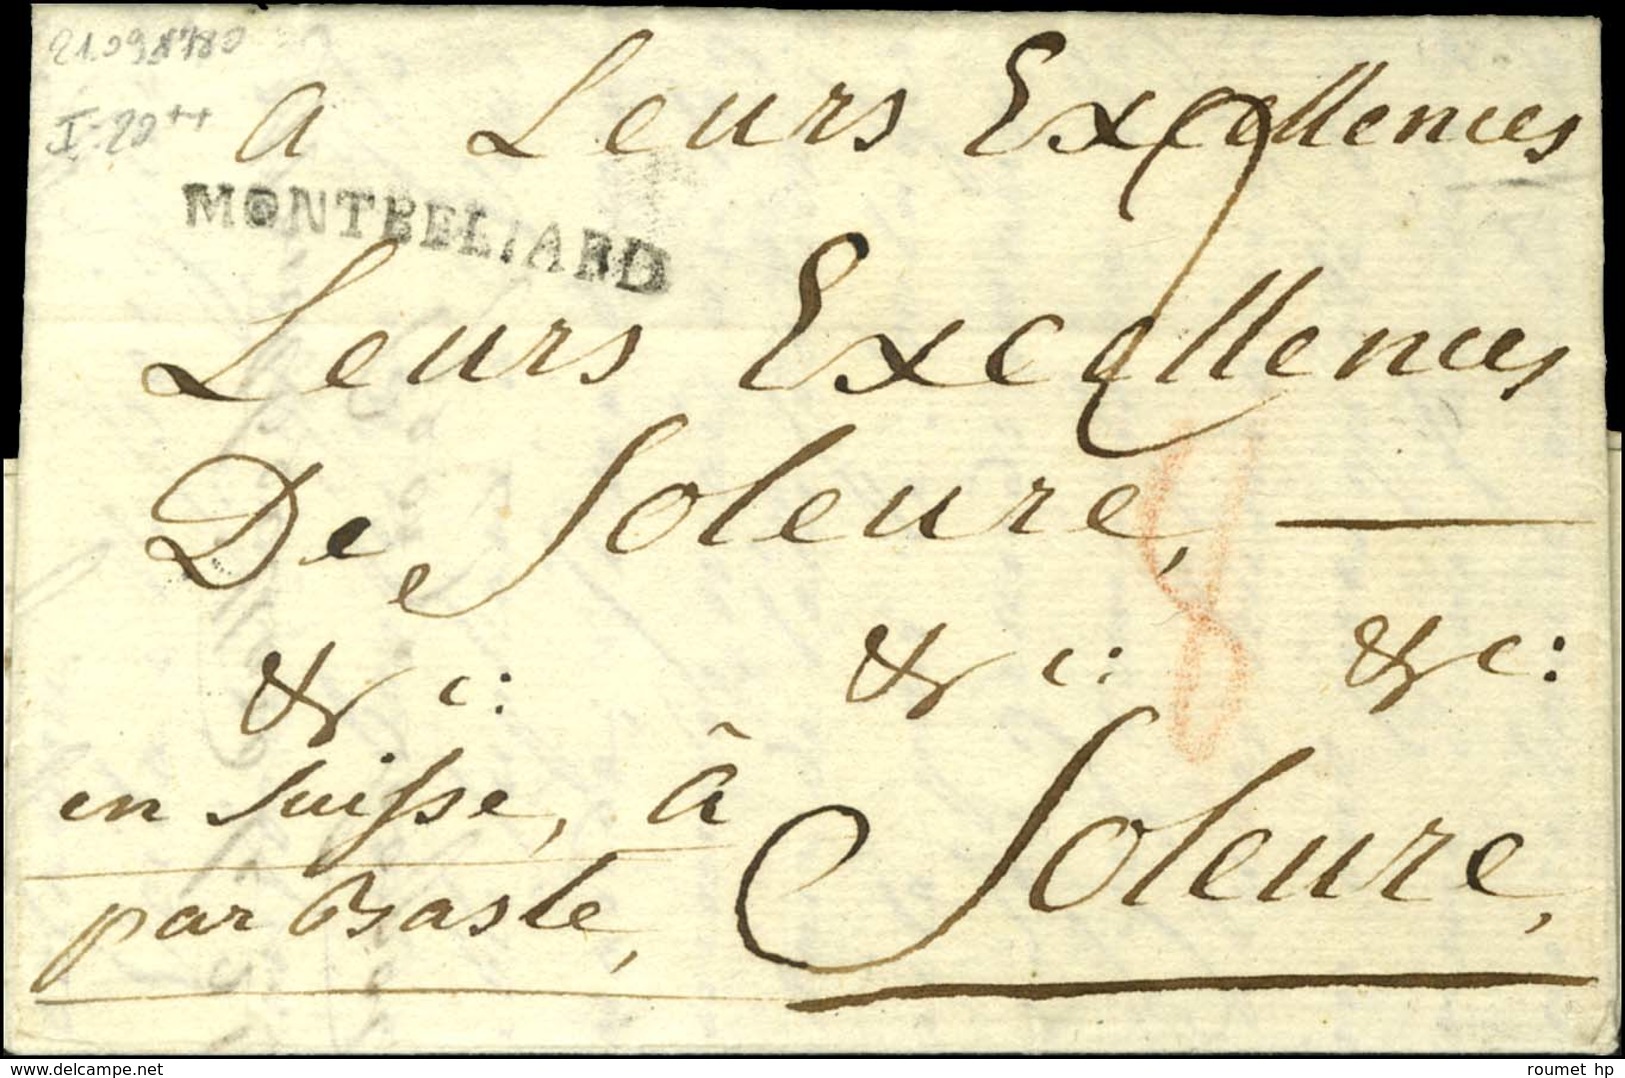 21.09.1780
I=20++
a Leurs Excellences
MONTBELIARD
Leurs Excellences
De Soleure,
&c: &c: &c:
en Suisse, à Soleure,
par Basle,
8
www.delcampe.net
roumet hp